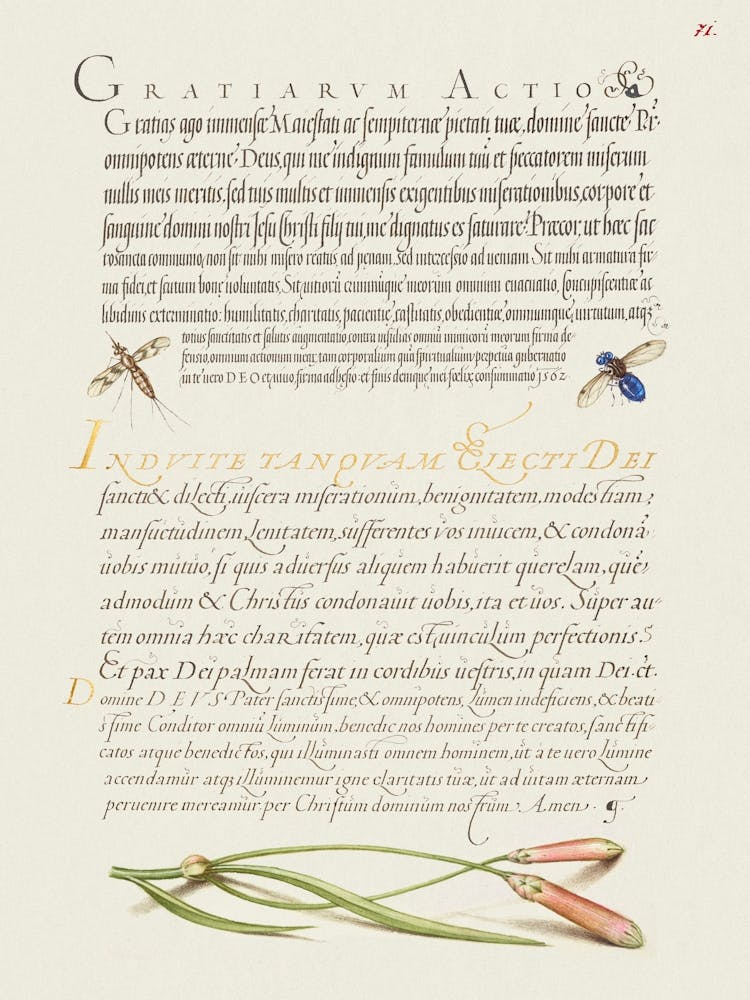 71.
GRATIARVM ACTIO
Gratias ago immensæ Maiestati ac sempiternæ pietati tuæ, domine sancte Pr̃
omnipotens æterne Deus, qui me indignum famulum tuũ et peccatorem miserum
nullis meis meritis, sed tuis multis et immensis exigentibus miserationibus, corpore et
sanguine domini nostri Jesu Christi filij tui, me dignatus es saturare. Præcor, ut hæc sac
rosancta communio, non sit mihi misero reatus ad penam, sed intercessio ad veniam. Sit mihi armatura fir
ma fidei, et scutum bonę voluntatis. Sit vitiorũ cunctorũque meorum omnium evacuatio, Concupiscentiæ ac
libidinis exterminatio: humilitatis, charitatis, pacientiæ, castitatis, obedientiæ, omniumque, virtutum, atqꝫ
totius sanctitatis et salutis augmentatio, contra insidias omniũ inimicorũ meorum firma de-
fensio, omnium actionum mearum tam corporalium quã spiritualium perpetua gubernatio
in te vero DEO et uiuo, firma adhesio: et finis denique mei fœlix consummatio 1562.
INDVITE TANQVAM ELECTI DEI
sancti & dilecti, uiscera miserationum, benignitatem, modestiam,
mansuetudinem, Lenitatem, sufferentes vos inuicem, & condonã
uobis mutuo, si quis aduersus aliquem habuerit querelam, quẽ
admodum & Christus condonauit uobis, ita et uos. Super au-
tem omnia hæc charitatem, quæ est uinculum perfectionis.
Et pax Dei palmam ferat in cordibus uestris, in quam Dei. ct.
Domine DEVS Pater sanctissime, & omnipotens, Lumen indeficiens, & beati
ssime Conditor omniũ Luminum, benedic nos homines per te creatos, sanctifi
catos atque benedictos, qui illuminasti omnem hominem, ut à te uero Lumine
accendamur atqꝫ illuminemur igne claritatis tuæ, ut ad uitam æternam
peruenire mereamur per Christum dominum nostrum. Amen.